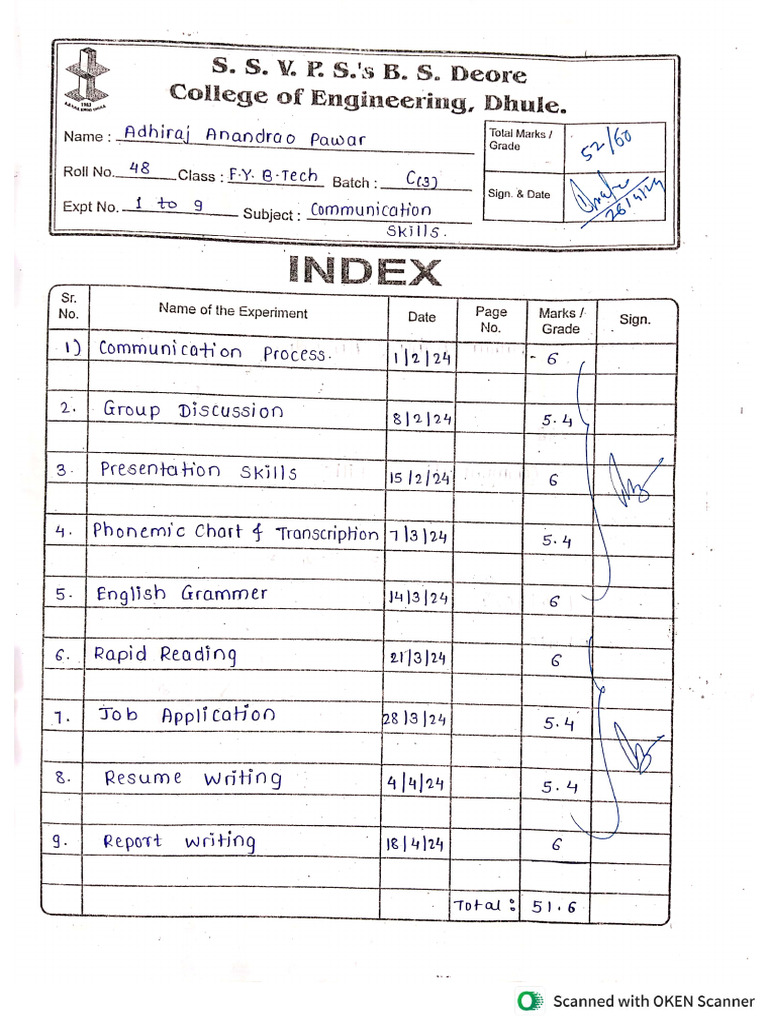 S. S. V. P. S.'s B. S. Deore
College of Engineering, Dhule.
1983
Name : Adhiraj Anandrao Pawar
Roll No. 48 Class : F.Y. B-Tech Batch : C(3)
Expt No. 1 to 9 Subject : Communication
Skills.
Total Marks /
Grade
52/60
Sign. & Date
26/4/24
INDEX
Sr.
No.
Name of the Experiment
Date
Page
No.
Marks /
Grade
Sign.
1) Communication Process. 1/2/24 - 6
2. Group Discussion 8/2/24 5.4
3. Presentation Skills 15/2/24 6
4. Phonemic Chart & Transcription 7/3/24 5.4
5. English Grammer 14/3/24 6
6. Rapid Reading 21/3/24 6
7. Job Application 28/3/24 5.4
8. Resume Writing 4/4/24 5.4
9. Report Writing 18/4/24 6
Total : 51.6
Scanned with OKEN Scanner